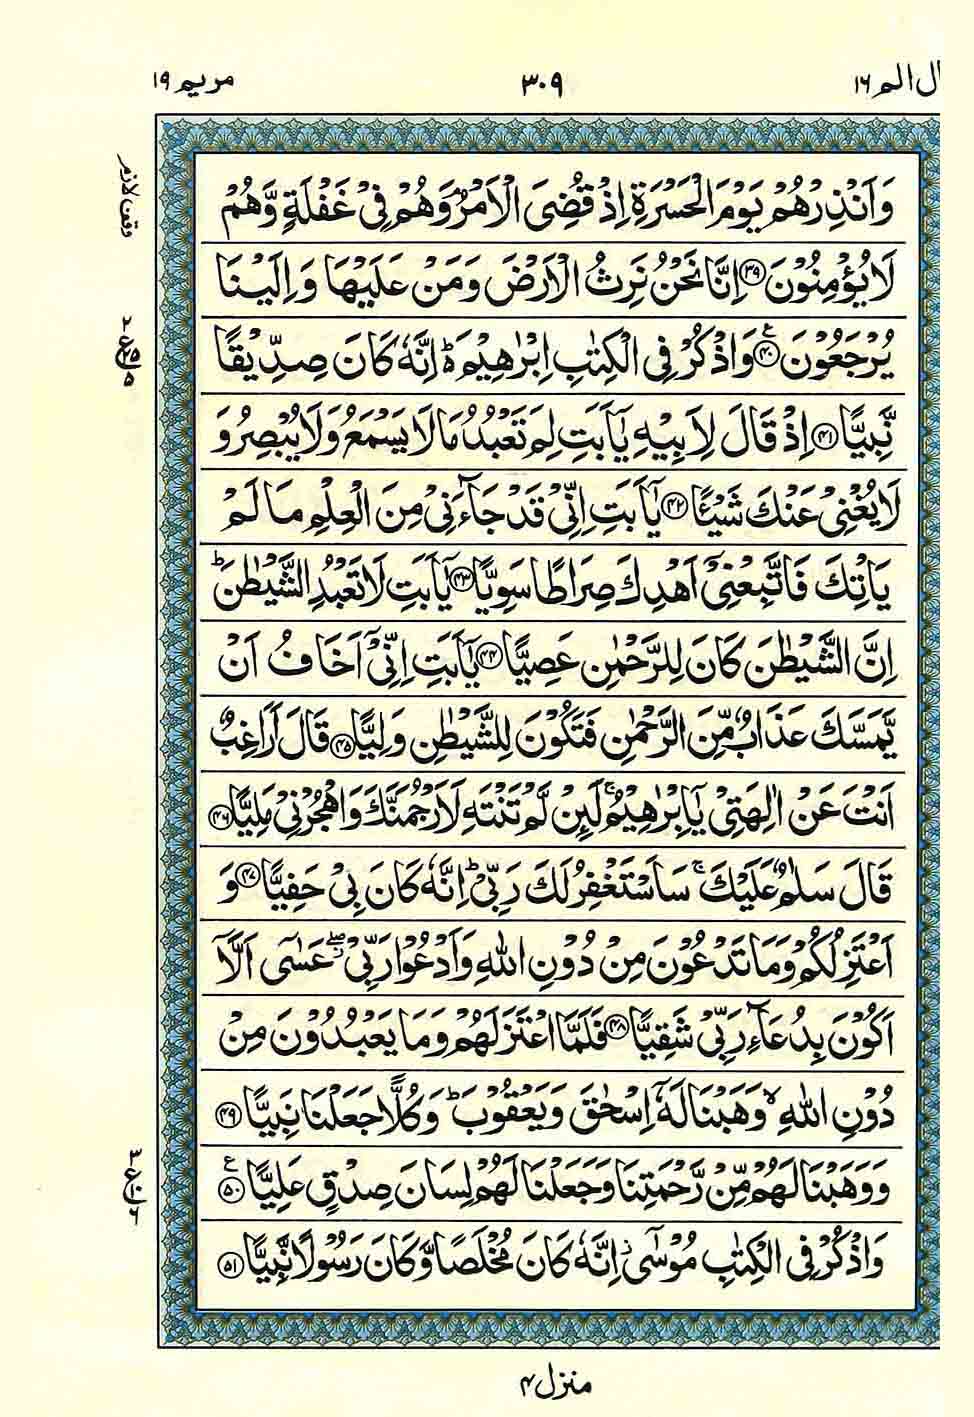 ال الم ١٦
٣٠٩
مريم ١٩
وَاَنْذِرْهُمْ يَوْمَ الْحَسْرَةِ اِذْ قُضِىَ الْاَمْرُ ۘ وَهُمْ فِىْ غَفْلَةٍ وَّهُمْ
لَا يُؤْمِنُوْنَ ﴿۳۹﴾ اِنَّا نَحْنُ نَرِثُ الْاَرْضَ وَمَنْ عَلَيْهَا وَاِلَيْنَا
يُرْجَعُوْنَ ﴿۴۰﴾ وَاذْكُرْ فِى الْكِتٰبِ اِبْرٰهِيْمَ ۬ؕ اِنَّهٗ كَانَ صِدِّيْقًا
نَّبِيًّا ﴿۴۱﴾ اِذْ قَالَ لِاَبِيْهِ يٰۤاَبَتِ لِمَ تَعْبُدُ مَا لَا يَسْمَعُ وَلَا يُبْصِرُ وَ
لَا يُغْنِىْ عَنْكَ شَيْـًٔا ﴿۴۲﴾ يٰۤاَبَتِ اِنِّىْ قَدْ جَآءَنِىْ مِنَ الْعِلْمِ مَا لَمْ
يَاْتِكَ فَاتَّبِعْنِىْۤ اَهْدِكَ صِرَاطًا سَوِيًّا ﴿۴۳﴾ يٰۤاَبَتِ لَا تَعْبُدِ الشَّيْطٰنَ ؕ
اِنَّ الشَّيْطٰنَ كَانَ لِلرَّحْمٰنِ عَصِيًّا ﴿۴۴﴾ يٰۤاَبَتِ اِنِّىْۤ اَخَافُ اَنْ
يَّمَسَّكَ عَذَابٌ مِّنَ الرَّحْمٰنِ فَتَكُوْنَ لِلشَّيْطٰنِ وَلِيًّا ﴿۴۵﴾ قَالَ اَرَاغِبٌ
اَنْتَ عَنْ اٰلِهَتِىْ يٰۤاِبْرٰهِيْمُ ۚ لَئِنْ لَّمْ تَنْتَهِ لَاَرْجُمَنَّكَ وَاهْجُرْنِىْ مَلِيًّا ﴿۴۶﴾
قَالَ سَلٰمٌ عَلَيْكَ ۚ سَاَسْتَغْفِرُ لَكَ رَبِّىْ ؕ اِنَّهٗ كَانَ بِىْ حَفِيًّا ﴿۴۷﴾ وَ
اَعْتَزِلُكُمْ وَمَا تَدْعُوْنَ مِنْ دُوْنِ اللّٰهِ وَاَدْعُوْا رَبِّىْ ۖ عَسٰۤى اَلَّاۤ
اَكُوْنَ بِدُعَآءِ رَبِّىْ شَقِيًّا ﴿۴۸﴾ فَلَمَّا اعْتَزَلَهُمْ وَمَا يَعْبُدُوْنَ مِنْ
دُوْنِ اللّٰهِ ۙ وَهَبْنَا لَهٗۤ اِسْحٰقَ وَيَعْقُوْبَ ؕ وَكُلًّا جَعَلْنَا نَبِيًّا ﴿۴۹﴾
وَوَهَبْنَا لَهُمْ مِّنْ رَّحْمَتِنَا وَجَعَلْنَا لَهُمْ لِسَانَ صِدْقٍ عَلِيًّا ﴿۵۰﴾
وَاذْكُرْ فِى الْكِتٰبِ مُوْسٰٓى اِنَّهٗ كَانَ مُخْلَصًا وَّكَانَ رَسُوْلًا نَّبِيًّا ﴿۵۱﴾
وقف لازم
٢
ع ٢٥
٥
٣
ع ١٠
٦
منزل ٤